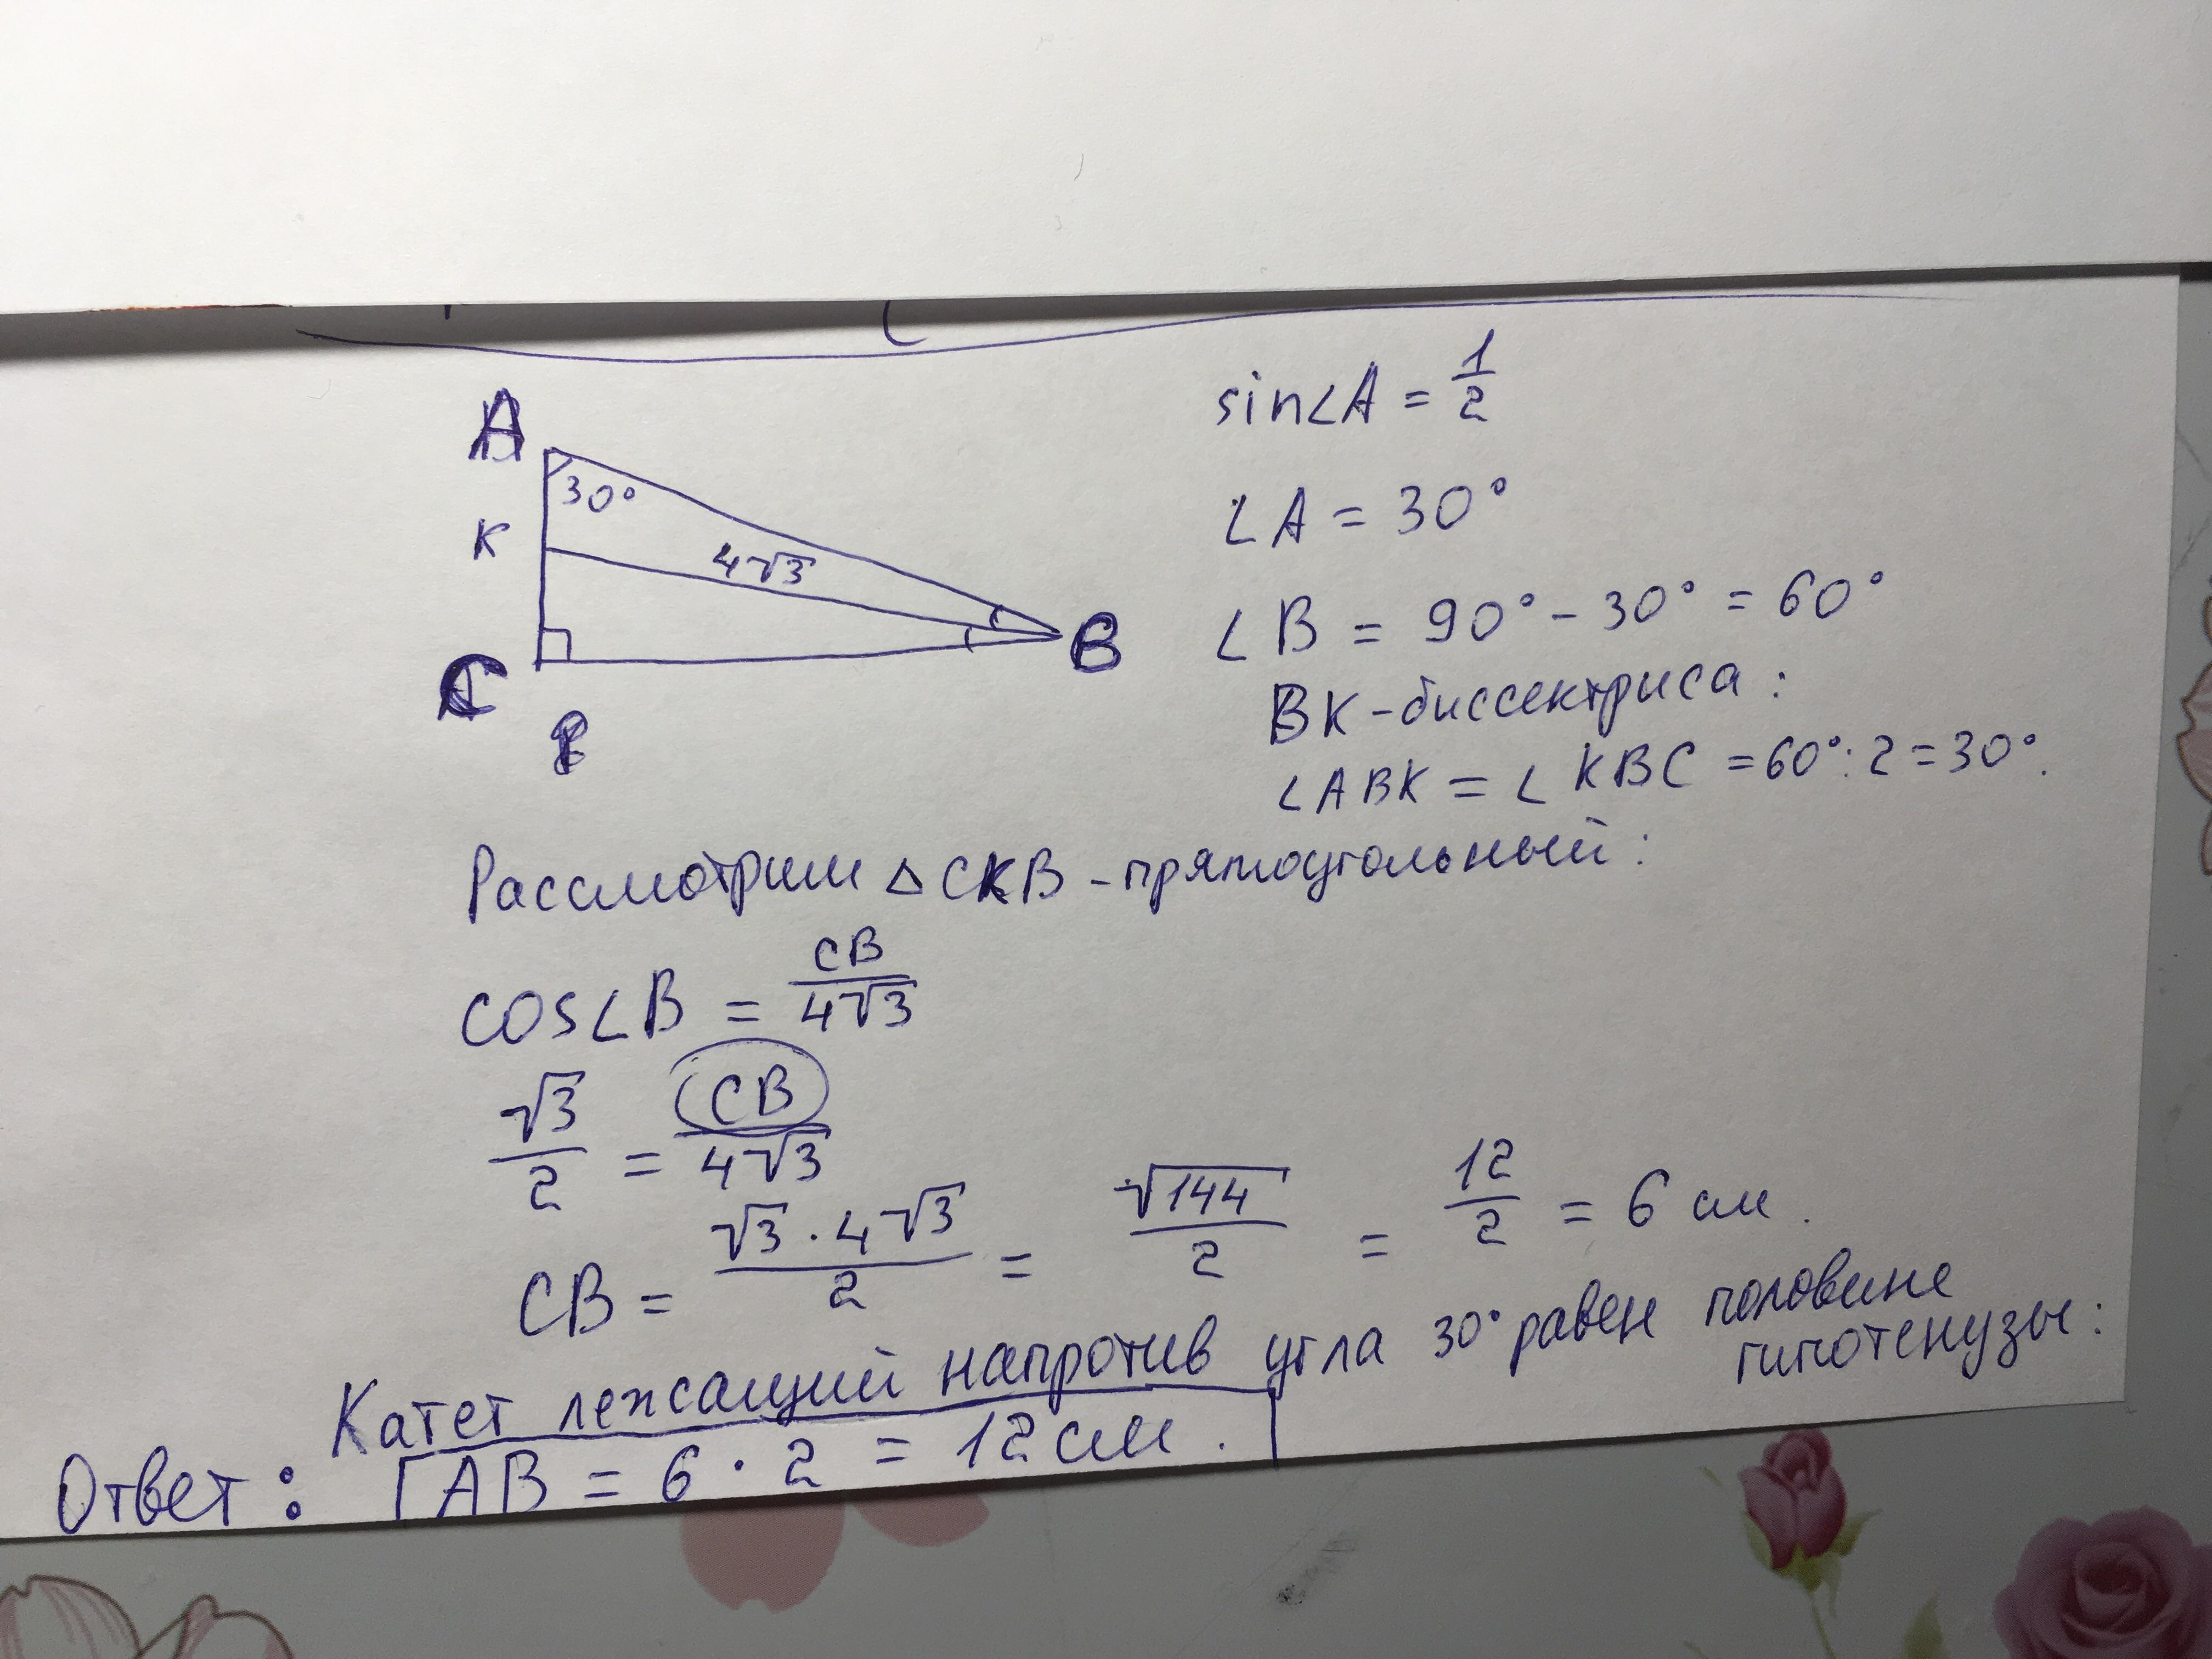 A
30°
К
4√3
B
C
sin∠A = 1/2
∠A = 30°
∠B = 90° - 30° = 60°
BK - биссектриса:
∠ABK = ∠KBC = 60° : 2 = 30°.
Рассмотрим △CKB - прямоугольный:
cos∠B = CB/4√3
√3/2 = CB/4√3
CB = √3 · 4√3/2 = √144/2 = 12/2 = 6 см.
Катет лежащий напротив угла 30° равен половине
гипотенузы:
Ответ: AB = 6 · 2 = 12 см.